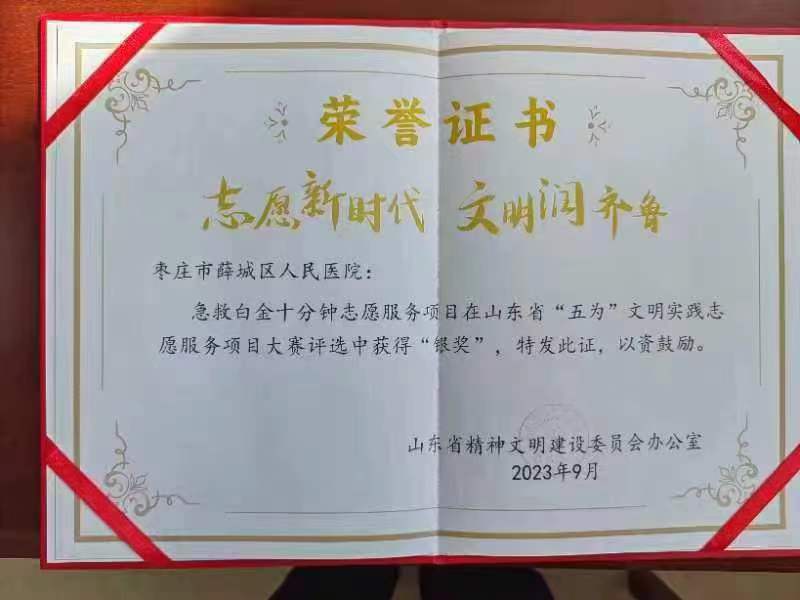 荣誉证书
志愿新时代 文明润齐鲁
枣庄市薛城区人民医院：
急救白金十分钟志愿服务项目在山东省“五为”文明实践志
愿服务项目大赛评选中获得“银奖”，特发此证，以资鼓励。
山东省精神文明建设委员会办公室
2023年9月